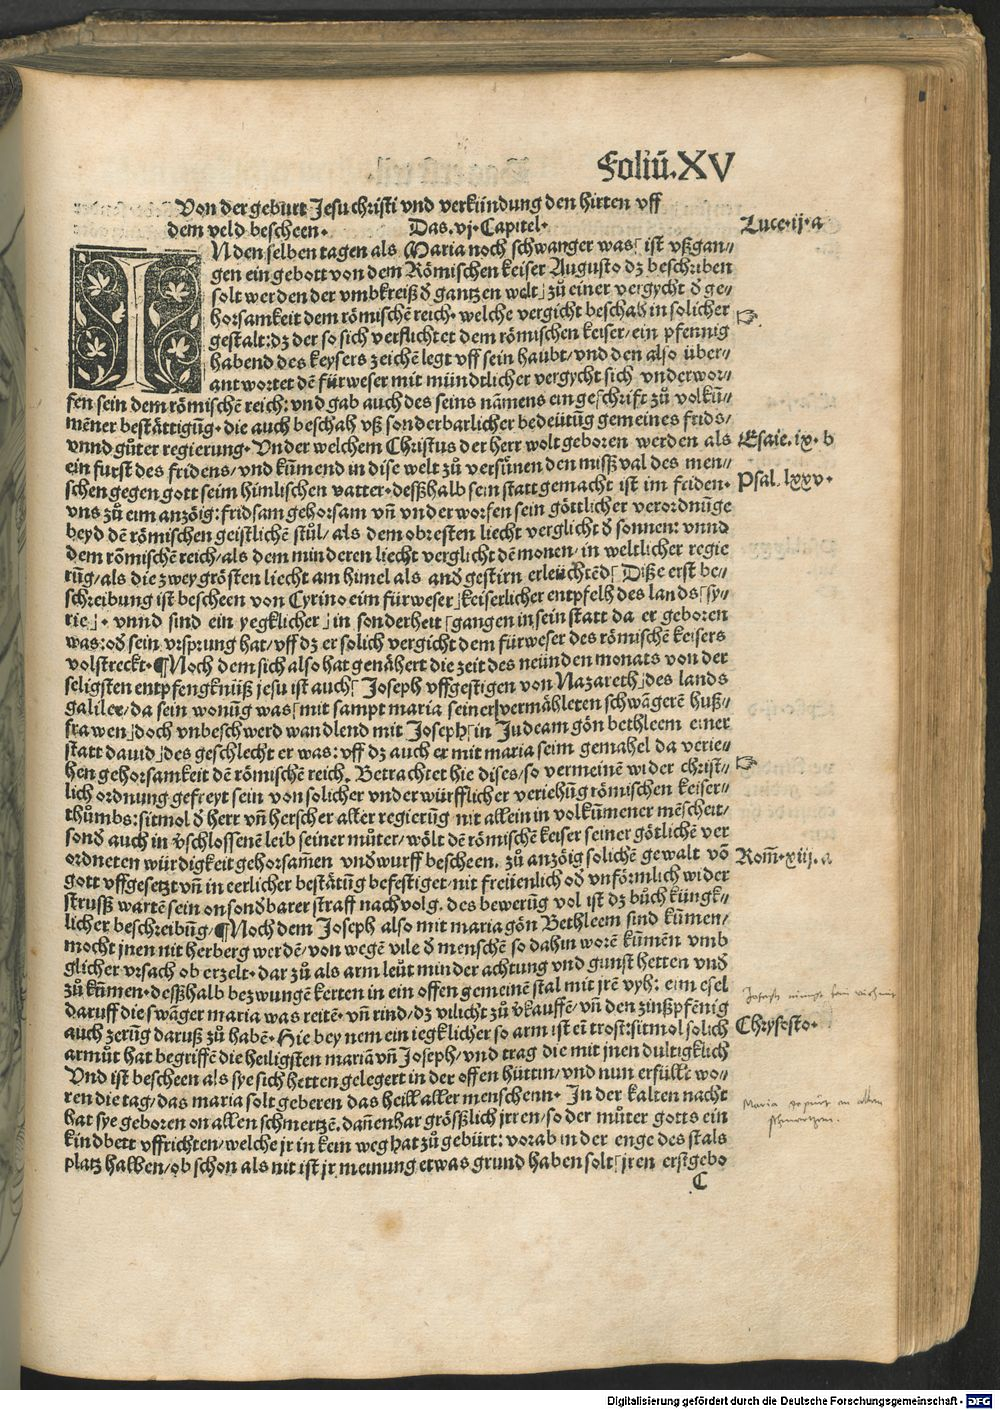 Foliū.XV
Von der geburt Jesu christi vnd verkündung den hirten vff
dem veld bescheen. Das.vj.Capitel.
Luce.ij.a
IN den selben tagen als Maria noch schwanger was⌈ ist vßgan-
gen ein gebott von dem Römischen keiser Augusto dz beschriben
solt werden der vmbkreiß d̄ gantzen welt⌋ zů einer vergycht d̄ ge-
horsamkeit dem römischē reich. welche vergicht beschah in solicher
gestalt: dz der so sich verflichtet dem römischen keiser/ein pfennig
habend des keysers zeichē legt vff sein haubt/vnd den also über-
antwortet dē fürweser mit mündtlicher vergycht sich vnderwor-
fen sein dem römischē reich: vnd gab auch des seins nāmens ein geschrift zů volkū-
mener bestättigūg. die auch beschah vß sonderbarlicher bedeütūg gemeines frids/
vnnd gůter regierung. Vnder welchem Christus der herr wolt geboren werden als
Esaie.ix.b
ein furst des fridens/vnd kūmend in dise welt zů versünen den missz val des men-
schen gegen gott seim himlischen vatter. deßhalb sein statt gemacht ist im friden.
Psal.lxxv.
vns zů eim anzöig: fridsam gehorsam vn̄ vnderworfen sein göttlicher verordnūge
beyd dē römischen geistlichē stůl/als dem obresten liecht verglicht d̄ sonnen: vnnd
dem römischē reich/als dem minderen liecht verglicht dē monen/in weltlicher regie
rūg/als die zwey grösten liecht am himel als and̄ gestirn erleüchtēd⌈ Diße erst be-
schreibung ist bescheen von Cyrino eim fürweser⌋ keiserlicher entpfelh des lands⌈sy-
rie⌋. vnnd sind ein yegklicher⌋ in sonderheit ⌈gangen in sein statt da er geboren
was: od̄ sein vrsprung hat/vff dz er solich vergicht dem fürweser des römischē keisers
volstreckt. ¶Noch dem sich also hat genähert die zeit des neünden monats von der
seligsten entpfengknüß jesu ist auch⌈ Joseph vffgestigen von Nazareth⌋ des lands
galilee/da sein wonūg was⌈ mit sampt maria seiner⌋vermähleten schwāgerē huß-
frawen⌋ doch vnbeschwerd wandlend mit Joseph⌈ in Judeam gön bethleem einer
statt dauid⌋ des geschlecht er was: vff dz auch er mit maria seim gemahel da verie-
hen gehorsamkeit dē römischē reich. Betrachtet hie dises/so vermeinē wider christ-
lich ordnung gefreyt sein von solicher vnderwürfflicher veriehūg römischen keiser-
thůmbs: sitmol d̄ herr vn̄ herscher aller regierūg nit allein in volkūmener mēscheit/
sond̄ auch in v̄schlossenē leib seiner můter/wölt dē römischē keiser seiner götlichē ver
ordneten würdigkeit gehorsamen vnd̄wurff bescheen. zů anzöig solichē gewalt vō
Rom̄.xiij.a
gott vffgesetzt vn̄ in eerlicher bestätūg befestiget. nit freüenlich od̄ vnförmlich wider
strusß wartē sein on sond̄barer straff nachvolg. des bewerūg vol ist dz bůch küngk-
licher beschreibūg/¶Noch dem Joseph also mit maria gön Bethleem sind kūmen/
mocht jnen nit herberg werdē/von wegē vile d̄ menschē so dahin worē kūmēn vmb
glicher vrsach ob erzelt. dar zů als arm leüt minder achtung vnd gunst hetten vnd̄
zů kūmen. deßhalb bezwungē kerten in ein offen gemeinē stal mit jrē vyh: eim esel
daruff die swāger maria was reitē. vn̄ rind/dz vilicht zů v̄kauffē/vn̄ den zinßpfēnig
auch zerūg daruß zů habē. Hie bey nem ein iegklicher so arm ist eī trost: sitmol solich
Chrysosto.
armůt hat begriffē die heiligsten mariā vn̄ Joseph/vnd trag die mit jnen dultigklich
Vnd ist bescheen als sye sich hetten gelegert in der offen hüttin/vnd nun erfüllt wo-
ren die tag/das maria solt geberen das heill aller menschenn. In der kalten nacht
hat sye geboren on allen schmertzē. dan̄enhar grösßlich jrren/so der můter gotts ein
kindbett vffrichten/welche jr in kein weg hat zů gebürt: vorab in der enge des stals
platz halben/ob schon als nit ist jr meinung etwas grund haben solt⌈ jren erstgebo
C
Maria on allen